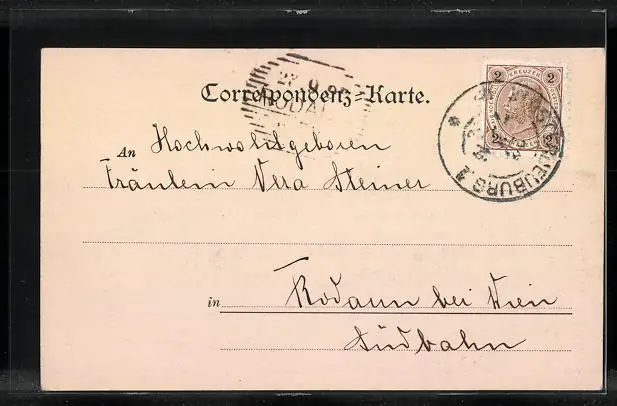 Correspondenz-Karte.
2 KREUZER 2
2 2
An Hochwohlgeboren
Fräulein Vera Steiner
in Rodaun bei Wien
Südbahn